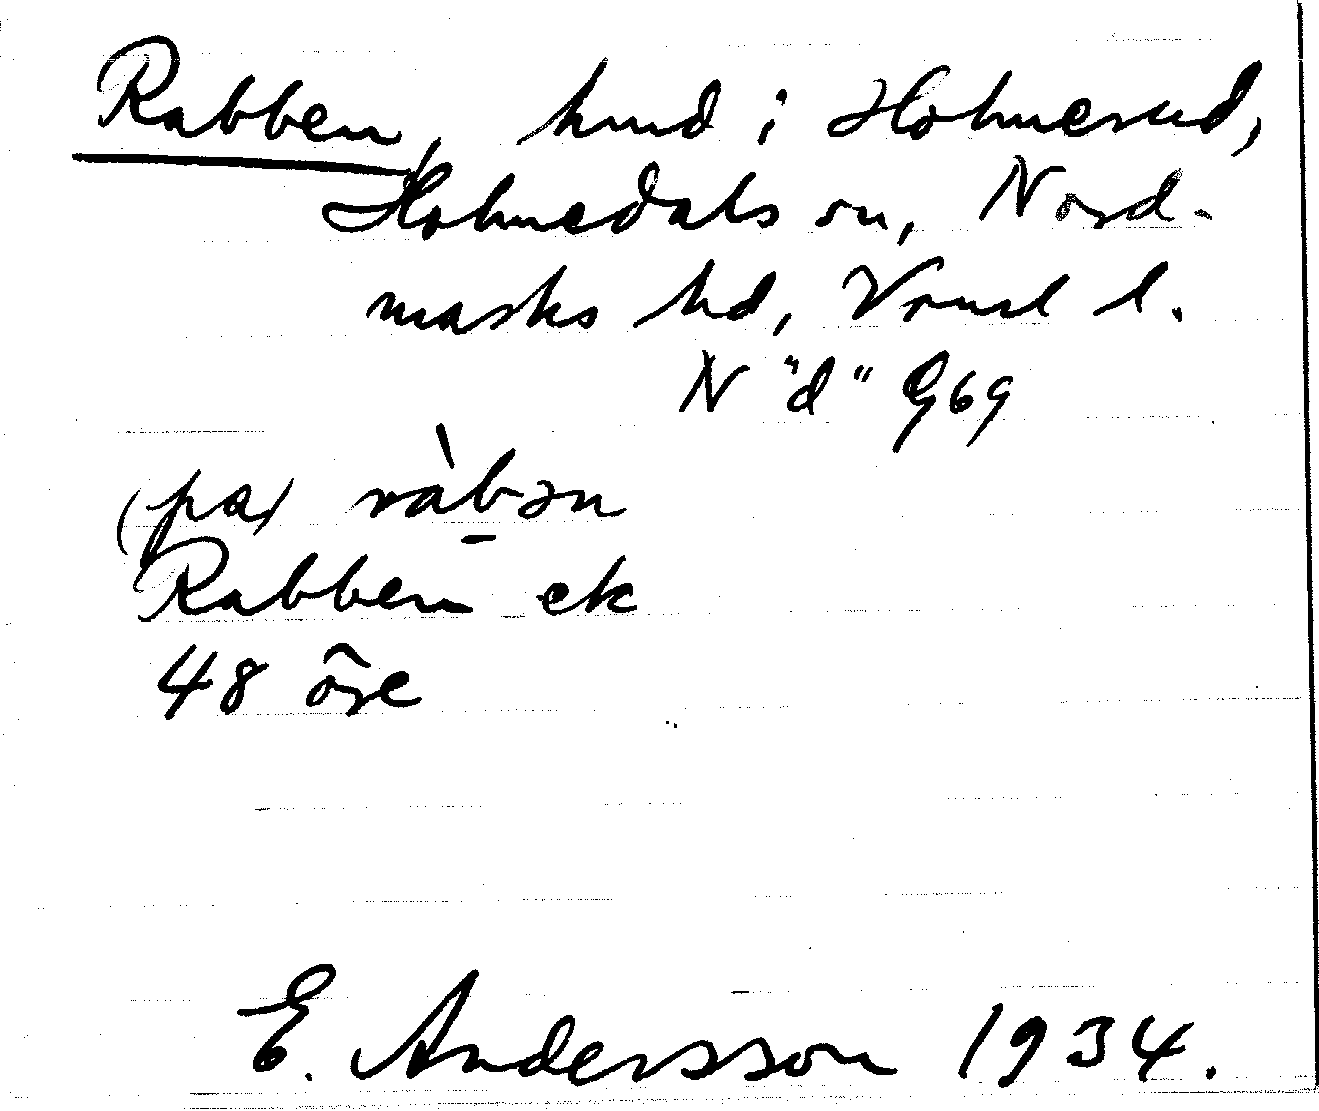 Rabben, hmd i Holmerud,
Holmedals sn, Nord-
marks hd, Vrml l.
N "d" G69
(på) ràbən
Rabben ek
48 öre
E. Andersson 1934.